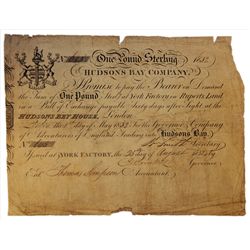 One Pound Sterling
HUDSONS BAY COMPANY.
Promise to pay the Bearer on Demand
the Sum of One Pound Sterg at York Factory in Ruperts Land
in a Bill of Exchange payable Sixty days after Sight, at the
HUDSONS BAY HOUSE, London
day of May 1832 for the Governor & Company
of Adventurers of England Trading into Hudsons Bay.
Secretary
Issued at YORK FACTORY, the day of August
Governor
Entd Thomas Simpson Accountant.